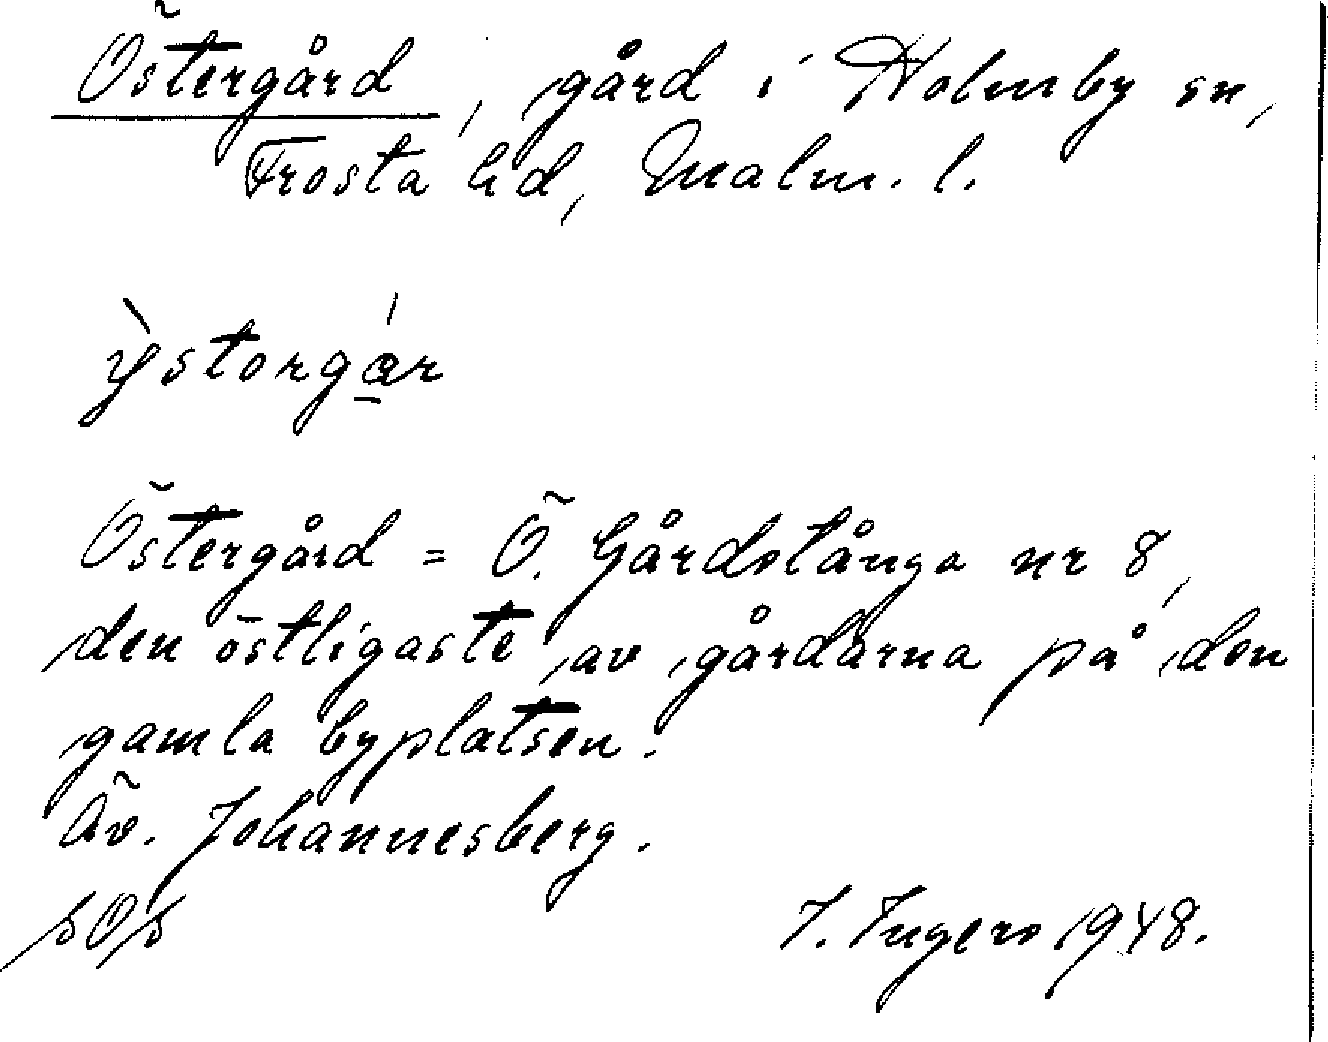 Östergård, gård i Holmby sn,
Frosta hd, Malm. l.
ỳstorgá̱r
Östergård = Ö. Gårdstånga nr 8,
den östligaste av gårdarna på den
gamla byplatsen.
Äv. Johannesberg.
I. Ingers 1948.